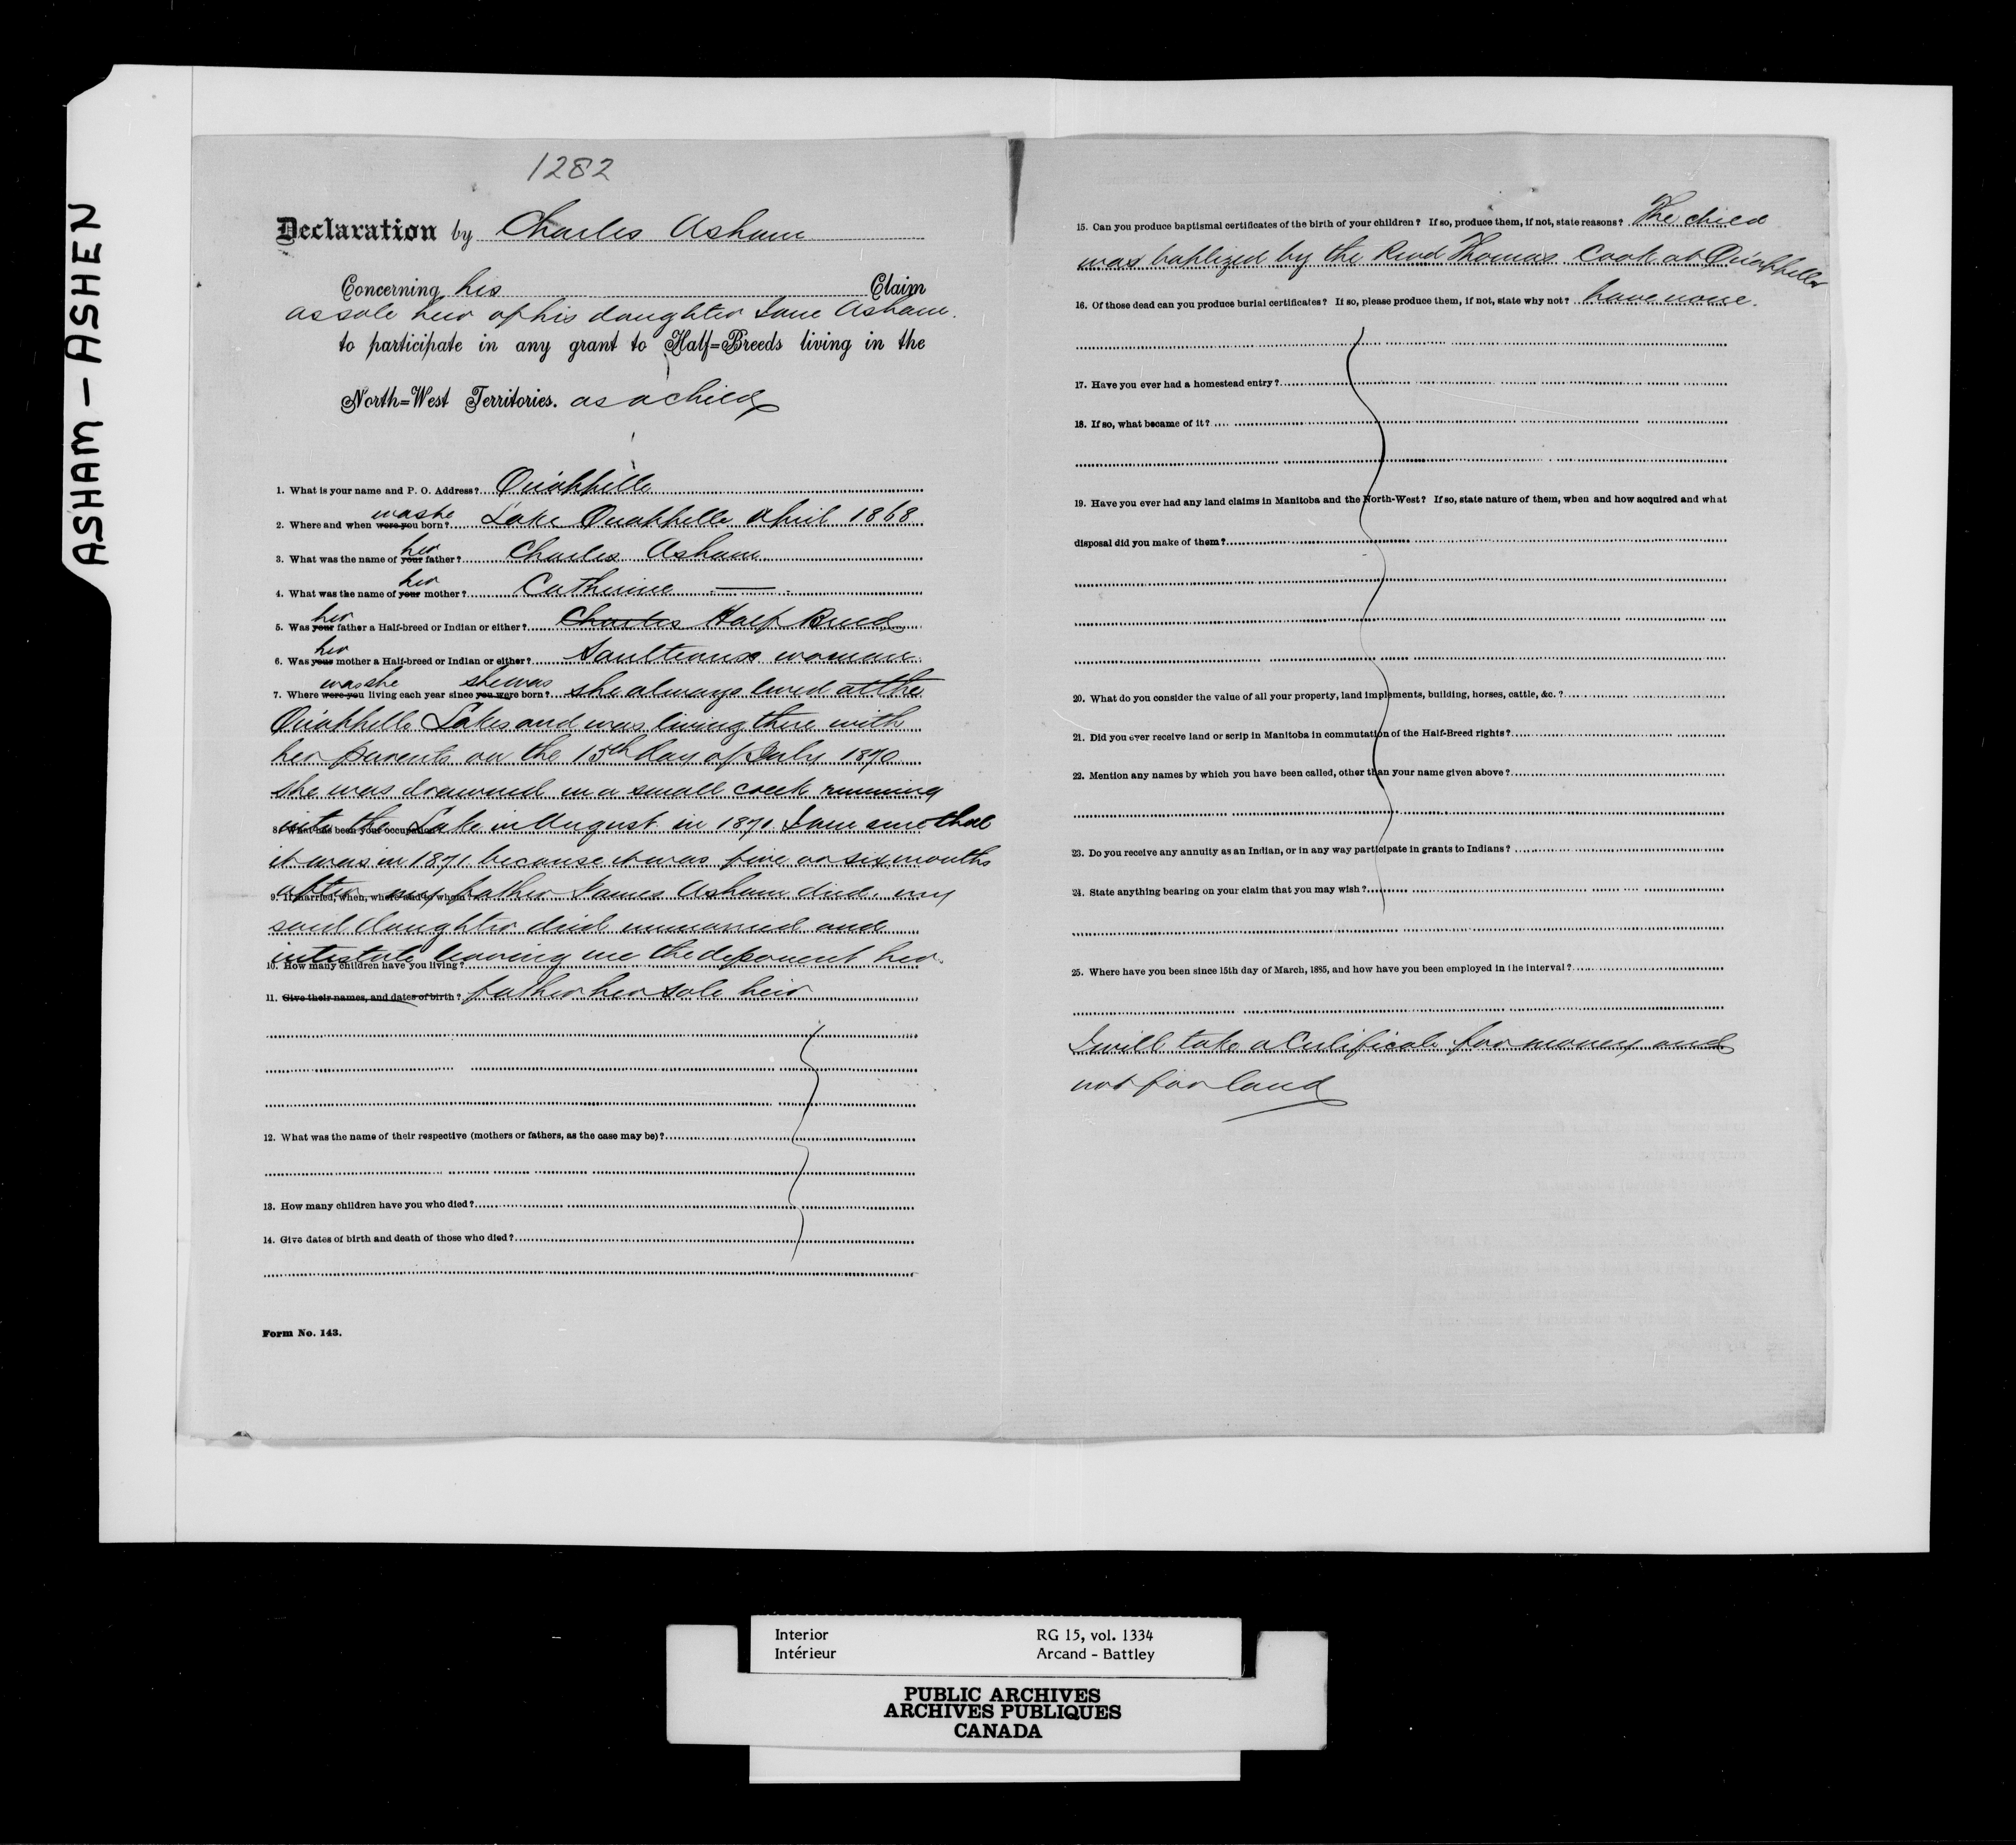 ASHAM - ASHEN
1282
Declaration by Charles Asham
Concerning his Claim
as sole heir of his daughter Jane Asham.
to participate in any grant to Half=Breeds living in the
North=West Territories. as a child
1. What is your name and P. O. Address? Qu'appelle
was she
2. Where and when were you born? Lake Qu'appelle April 1868
her
3. What was the name of your father? Charles Asham
her
4. What was the name of your mother? Catherine —
her
5. Was your father a Half-breed or Indian or either? Charles Half Breed
her
6. Was your mother a Half-breed or Indian or either? Saulteaux woman.
was she she was
7. Where were you living each year since you were born? she always lived at the
Qu'appelle Lakes and was living there with
her parents on the 15th day of July 1870
she was drowned in a small creek running
into the Lake in August in 1871. I am sure that
8. What has been your occupation?
it was in 1871 because it was five or six months
after my father James Asham died. my
9. If married, when, where and to whom?
said daughter died unmarried and
intestate leaving me the deponent her
10. How many children have you living?
11. Give their names, and dates of birth? father her sole heir
12. What was the name of their respective (mothers or fathers, as the case may be)?
13. How many children have you who died?
14. Give dates of birth and death of those who died?
Form No. 143.
15. Can you produce baptismal certificates of the birth of your children? If so, produce them, if not, state reasons? The child
was baptized by the Revd Thomas Cook at Qu'appelle
16. Of those dead can you produce burial certificates? If so, please produce them, if not, state why not? have none.
17. Have you ever had a homestead entry?
18. If so, what became of it?
19. Have you ever had any land claims in Manitoba and the North-West? If so, state nature of them, when and how acquired and what
disposal did you make of them?
20. What do you consider the value of all your property, land implements, building, horses, cattle, &c.?
21. Did you ever receive land or scrip in Manitoba in commutation of the Half-Breed rights?
22. Mention any names by which you have been called, other than your name given above?
23. Do you receive any annuity as an Indian, or in any way participate in grants to Indians?
24. State anything bearing on your claim that you may wish?
25. Where have you been since 15th day of March, 1885, and how have you been employed in the interval?
I will take a Certificate for money and
not for land
Interior RG 15, vol. 1334
Intérieur Arcand - Battley
PUBLIC ARCHIVES
ARCHIVES PUBLIQUES
CANADA